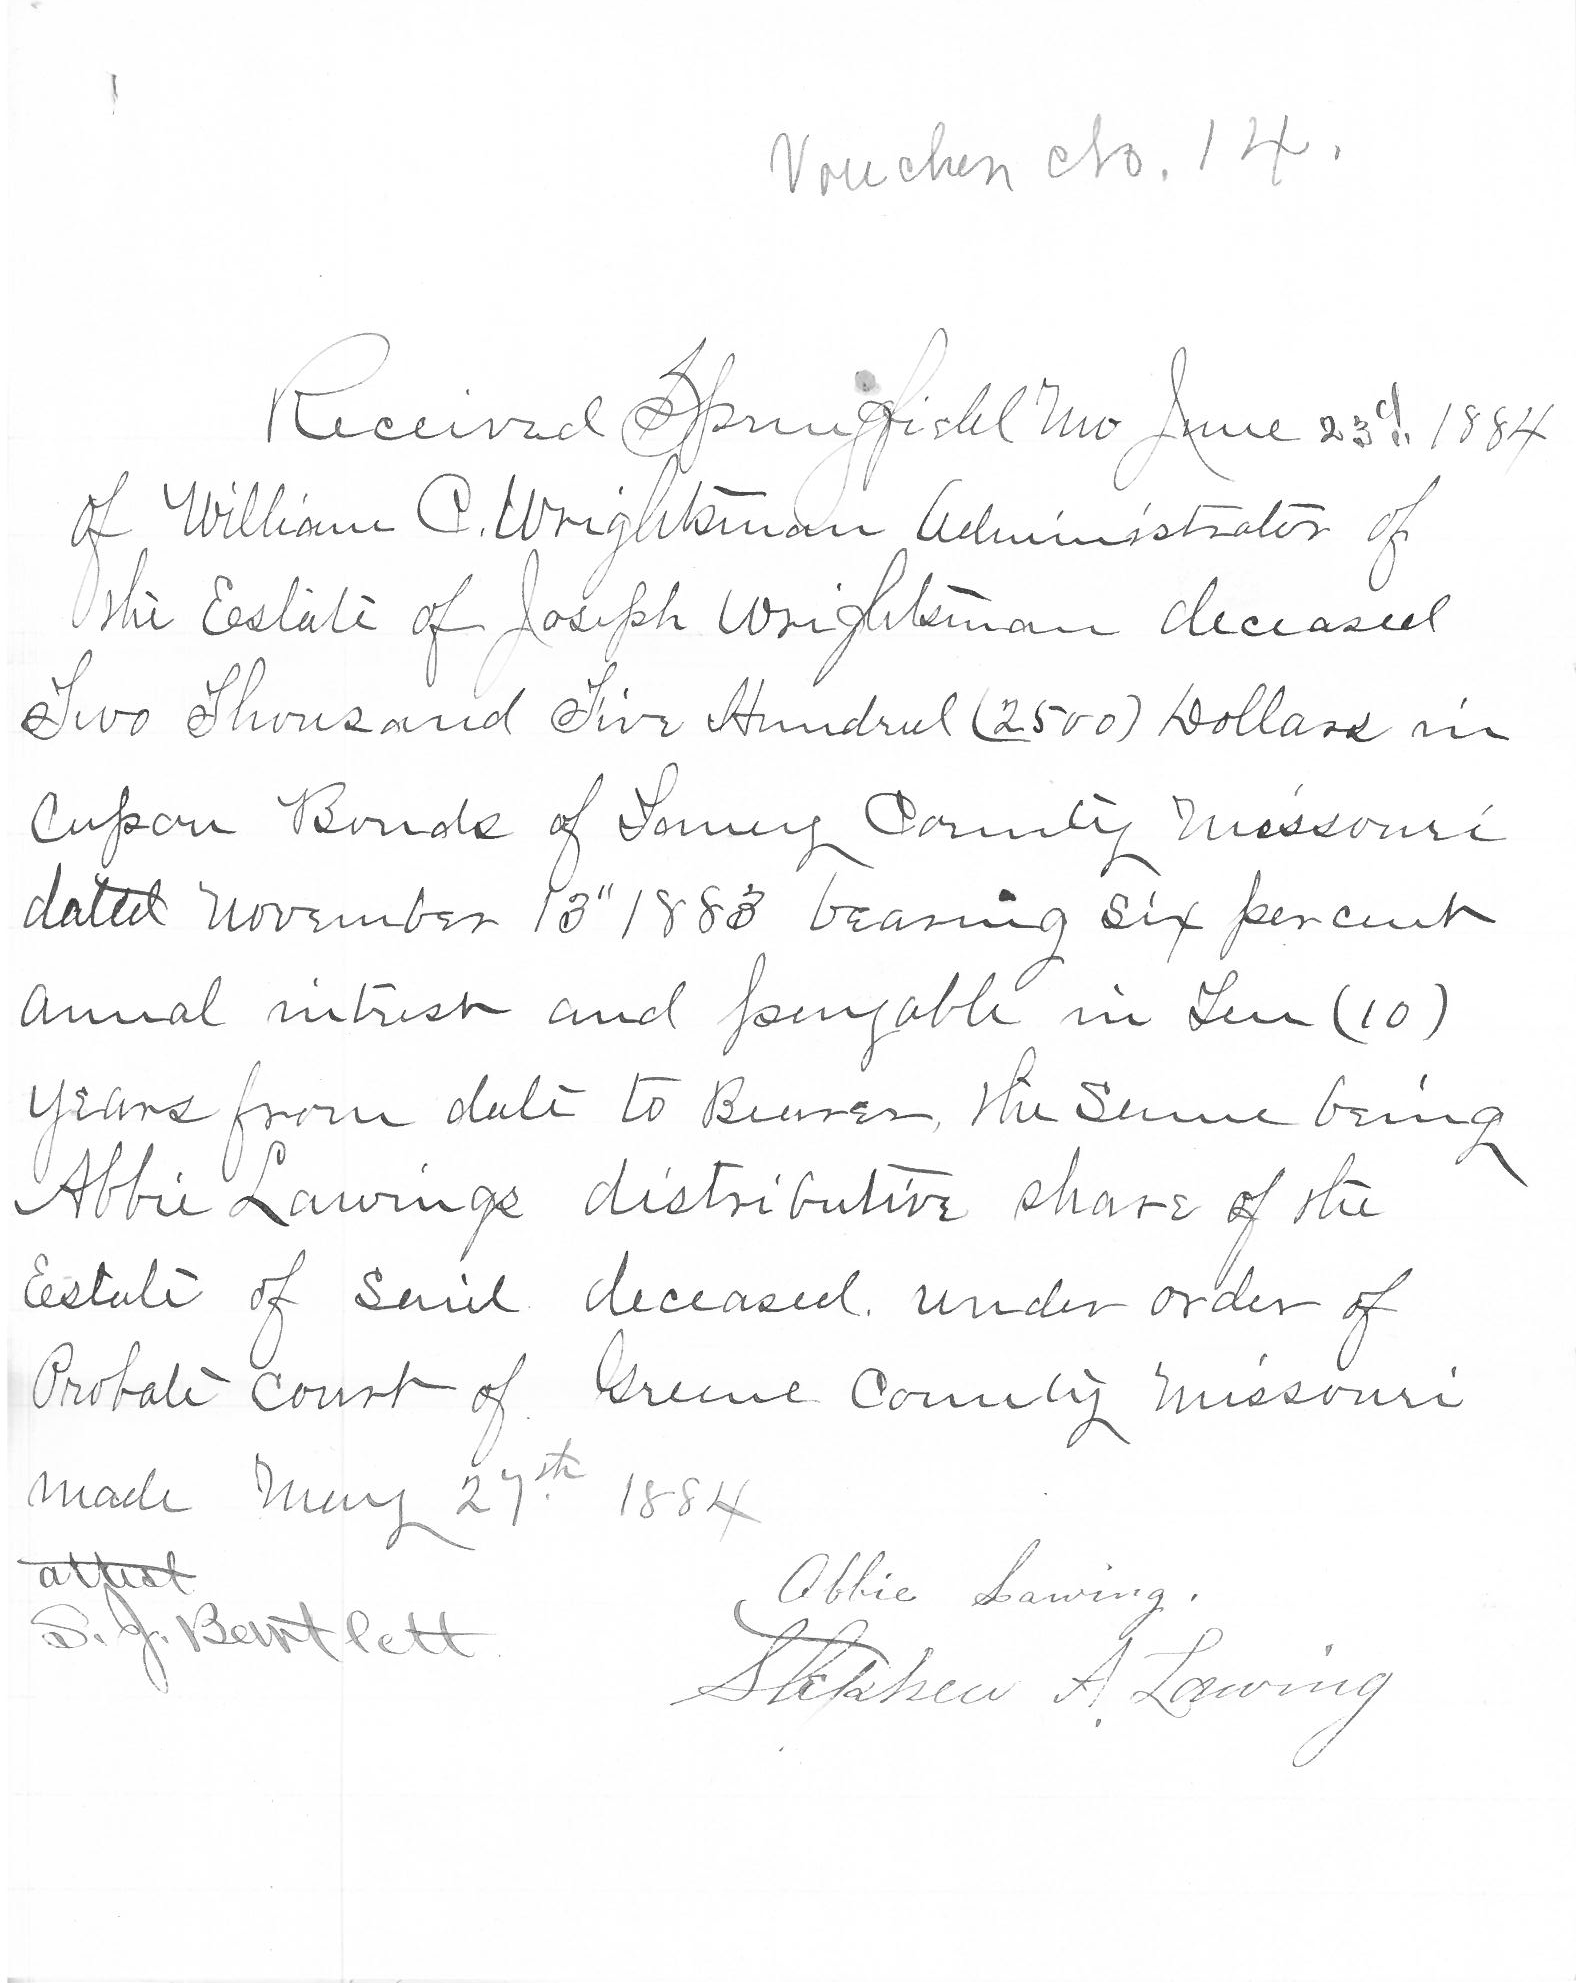 Voucher No. 14.
Received Springfield Mo June 23d. 1884
of William C. Wrightsman Administrator of
the Estate of Joseph Wrightsman deceased
Two Thousand Five Hundred (2500) Dollars in
Cupon Bonds of Taney County Missouri
dated November 13" 1883 bearing six per cent
annual intrest and payable in Ten (10)
years from date to Bearer, the same being
Abbie Lawings distributive share of the
Estate of said deceased. under order of
Probate Court of Greene County Missouri
made May 27th. 1884
attest
S. J. Bartlett
Abbie Lawing.
Stephen A. Lawing